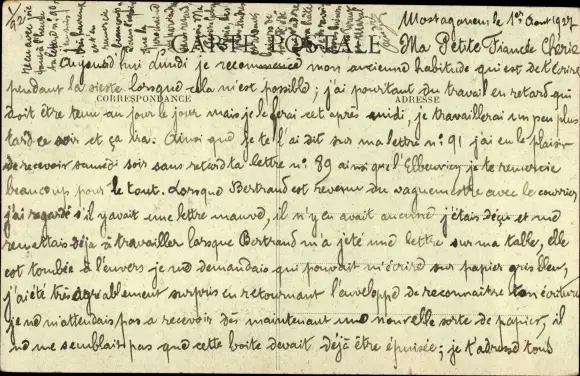 92
Mostaganem le 1er Aout 1927
CARTE POSTALE
Ma Petite Fiancée Chérie
Aujourd'hui lundi je recommence mon ancienne habitude qui est de t'écrire
pendant la sieste lorsque cela m'est possible ; j'ai pourtant du travail en retard qui
CORRESPONDANCE
ADRESSE
doit être tenu au jour le jour mais je le ferai cet après midi, je travaillerai un peu plus
tard ce soir et ça ira. Ainsi que je te l'ai dit sur ma lettre n° 91 j'ai eu le plaisir
de recevoir samedi soir sans retard ta lettre n° 89 ainsi que l'Elbeuvien je te remercie
beaucoup pour le tout. Lorsque Bertrand est revenu du vaguemestre avec le courrier
j'ai regardé s'il y avait une lettre mauve, il n'y en avait aucune j'étais déçu et me
remettais déjà à travailler lorsque Bertrand m'a jeté une lettre sur ma table, elle
est tombée à l'envers je me demandais qui pouvait m'écrire sur papier gris bleu,
j'ai été très agréablement surpris en retournant l'enveloppe de reconnaître ton écriture
je ne m'attendais pas à recevoir dès maintenant une nouvelle sorte de papier, il
ne me semblait pas que cette boite devait déjà être épuisée ; je t'adresse tous